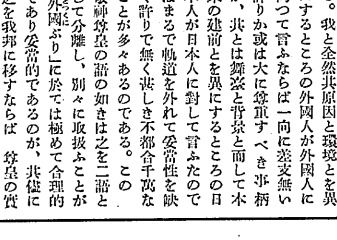 。我と全然其原因と環境とを異
するところの外國人が外國人に
つて言ふならば一向に差支無い
りか或は大に尊重すべき事柄
が、其とは舞臺と背景と而して本
の建前とを異にするところの日
本人が日本人に對して言ふたので
はまるで軌道を外れて妥當性を缺
許りで無く甚しき不都合千萬な
ことが多々あるのである。この
敬神尊皇の語の如きは之を二語と
して分離し、別々に取扱ふことが
外國ぶり」に於ては極めて合理的
であり妥當的であるのが、其儘に
之を我邦に移すならば 尊皇の實